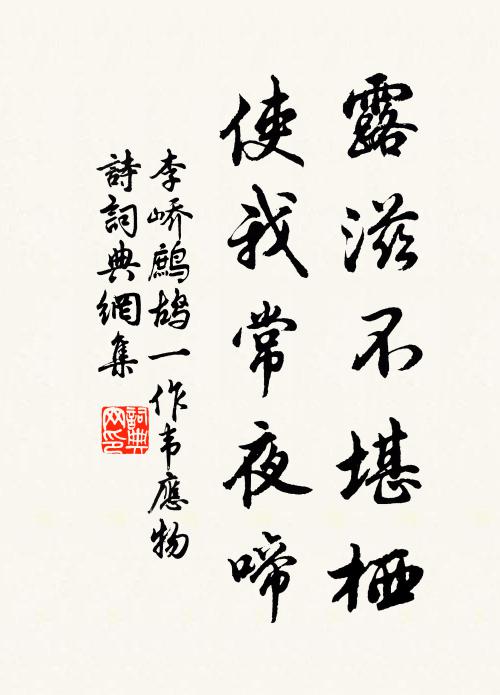 露滋不堪栖
使我常夜啼
李峤鹧鸪一作韦應物
詩詞典網集
詞典网印